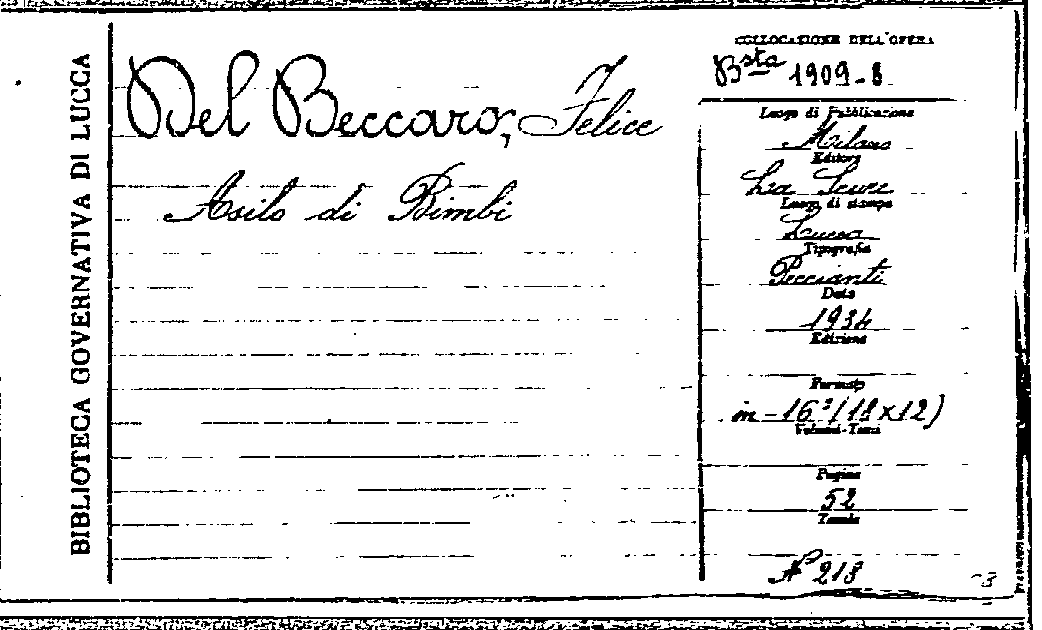 BIBLIOTECA GOVERNATIVA DI LUCCA
Del Beccaro, Felice
Asilo di Bimbi
COLLOCAZIONE DELL'OPERA
Bsta 1909-8
Luogo di Pubblicazione
Milano
Editore
La
Luogo di stampa
Lucca
Tipografia
Peccianti
Data
1934
Edizione
Formato
in-16º (18x12)
Volumi-Tomi
Pagine
52
Tavole
Nº 213